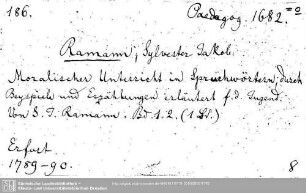 186. Paedagog. 1682.=o
Ramann, Sylvester Jakob.
Moralischer Unterricht in Sprüchwörtern, durch
Beyspiele und Erzählungen erläutert f. d. Jugend.
Von S. J. Ramann. Bd. 1.2. (1 St.)
Erfurt
1789-90. 8
Sächsische Landesbibliothek -
Staats- und Universitätsbibliothek Dresden